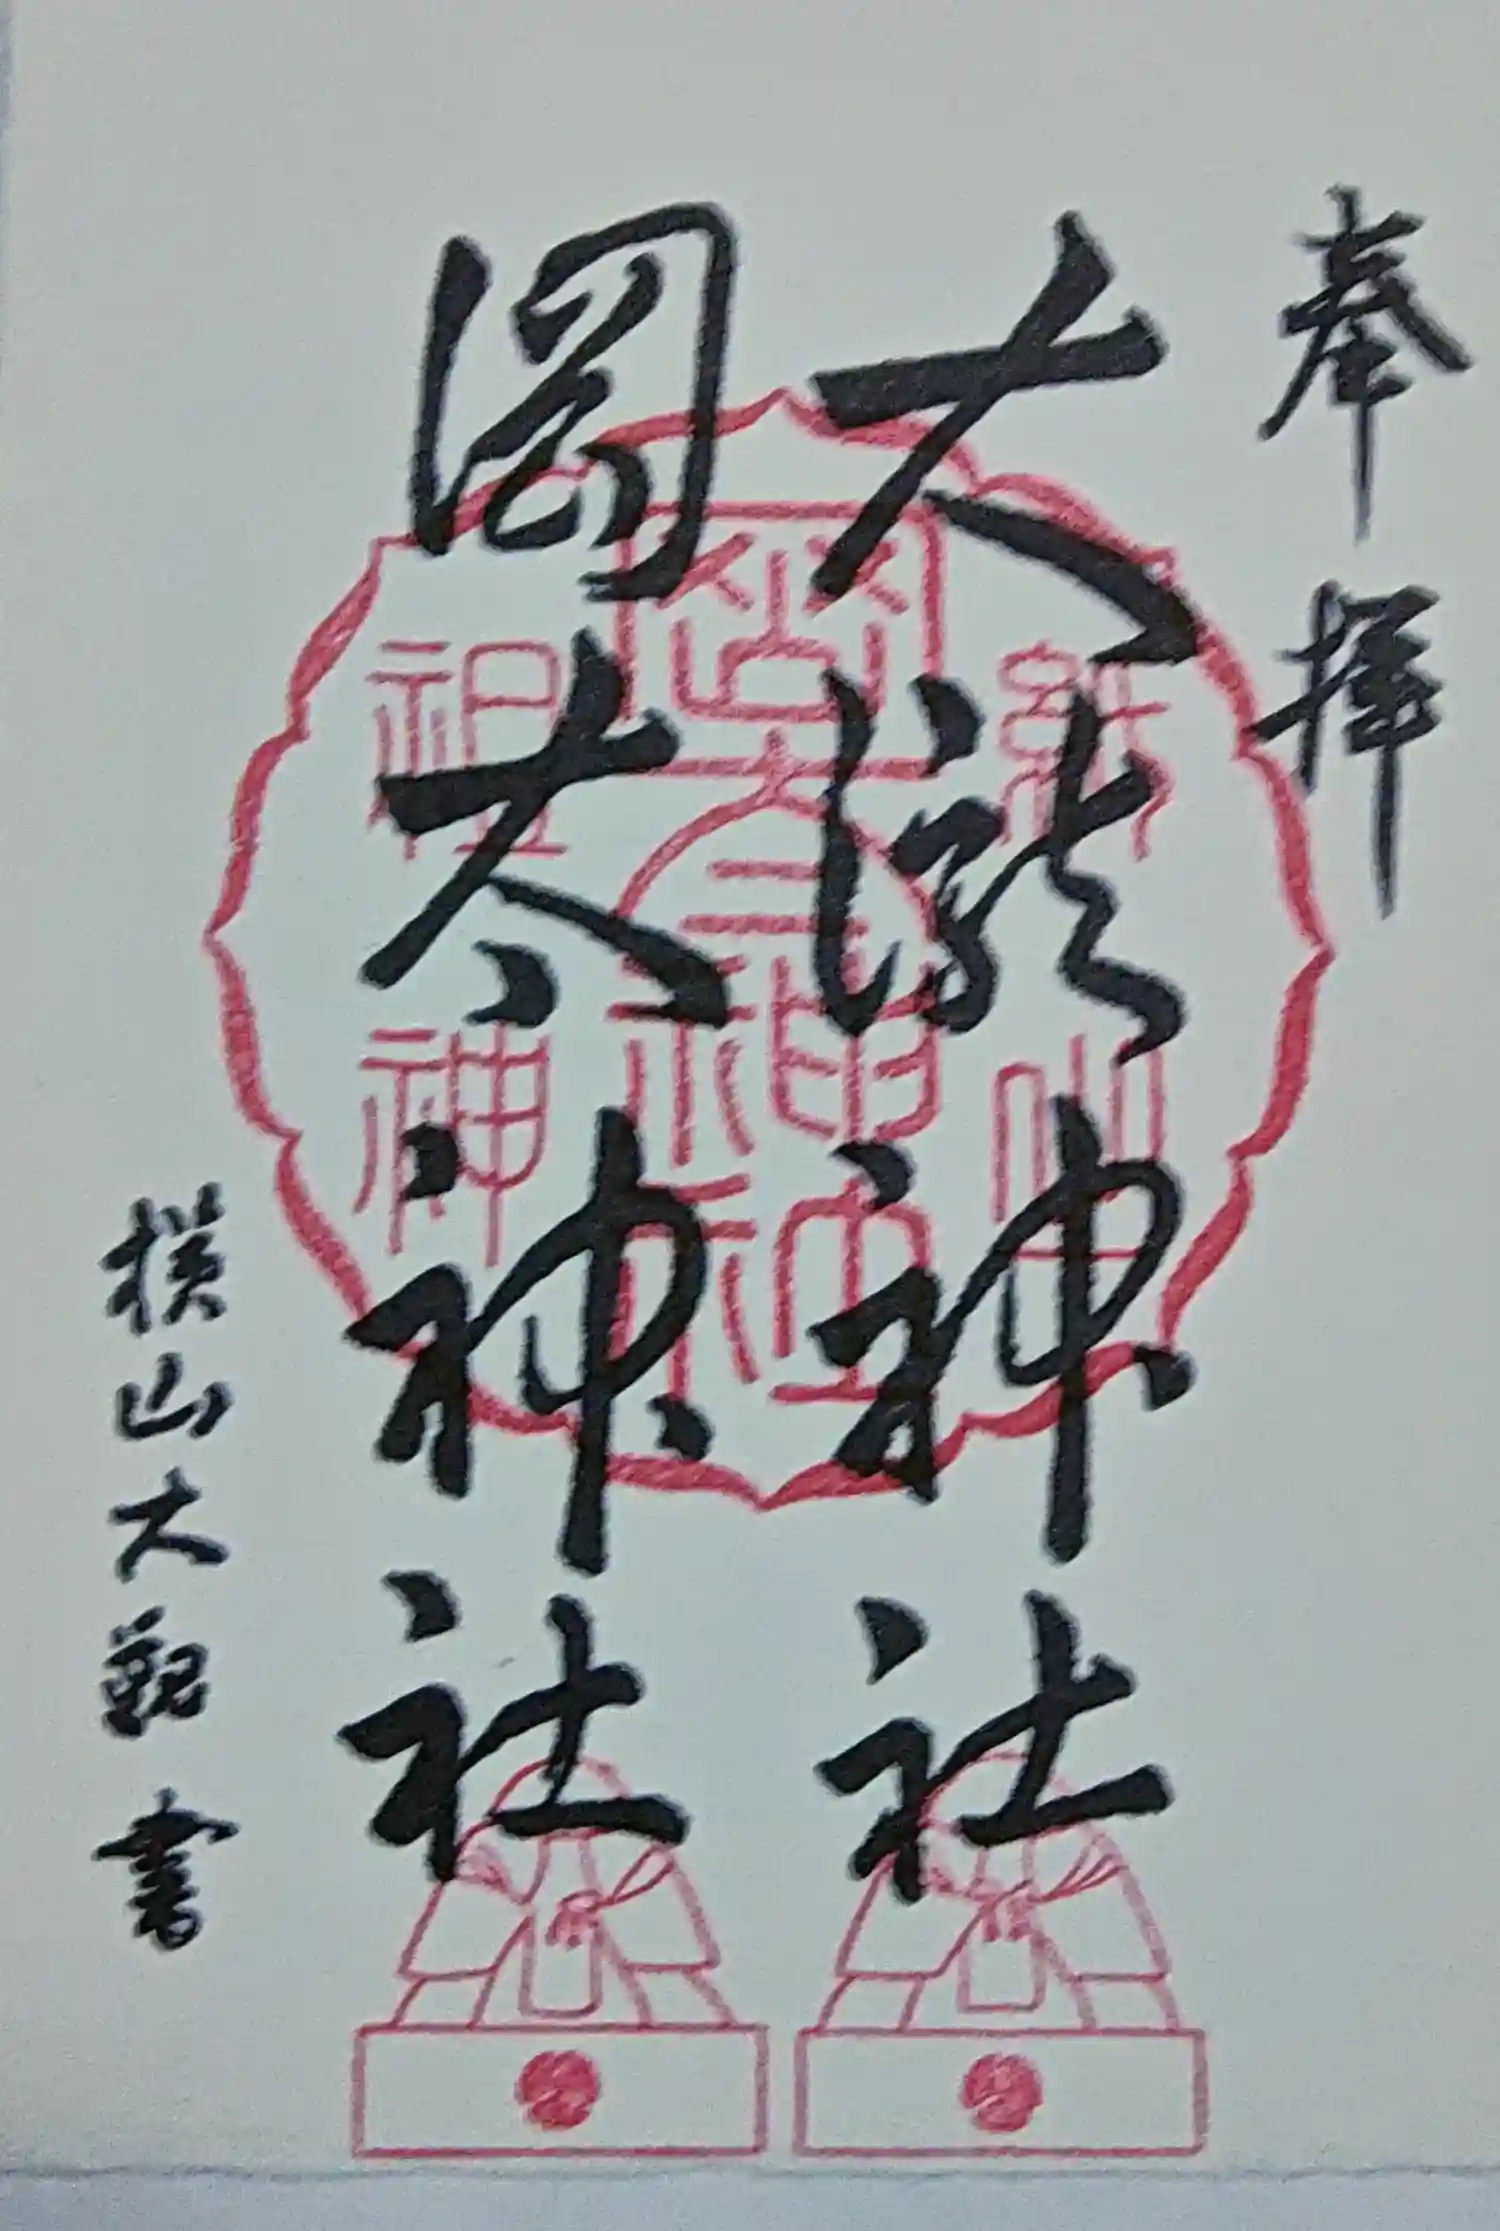 奉拝
大瀧神社
岡太神社
横山大観書
岡太神社
祖神